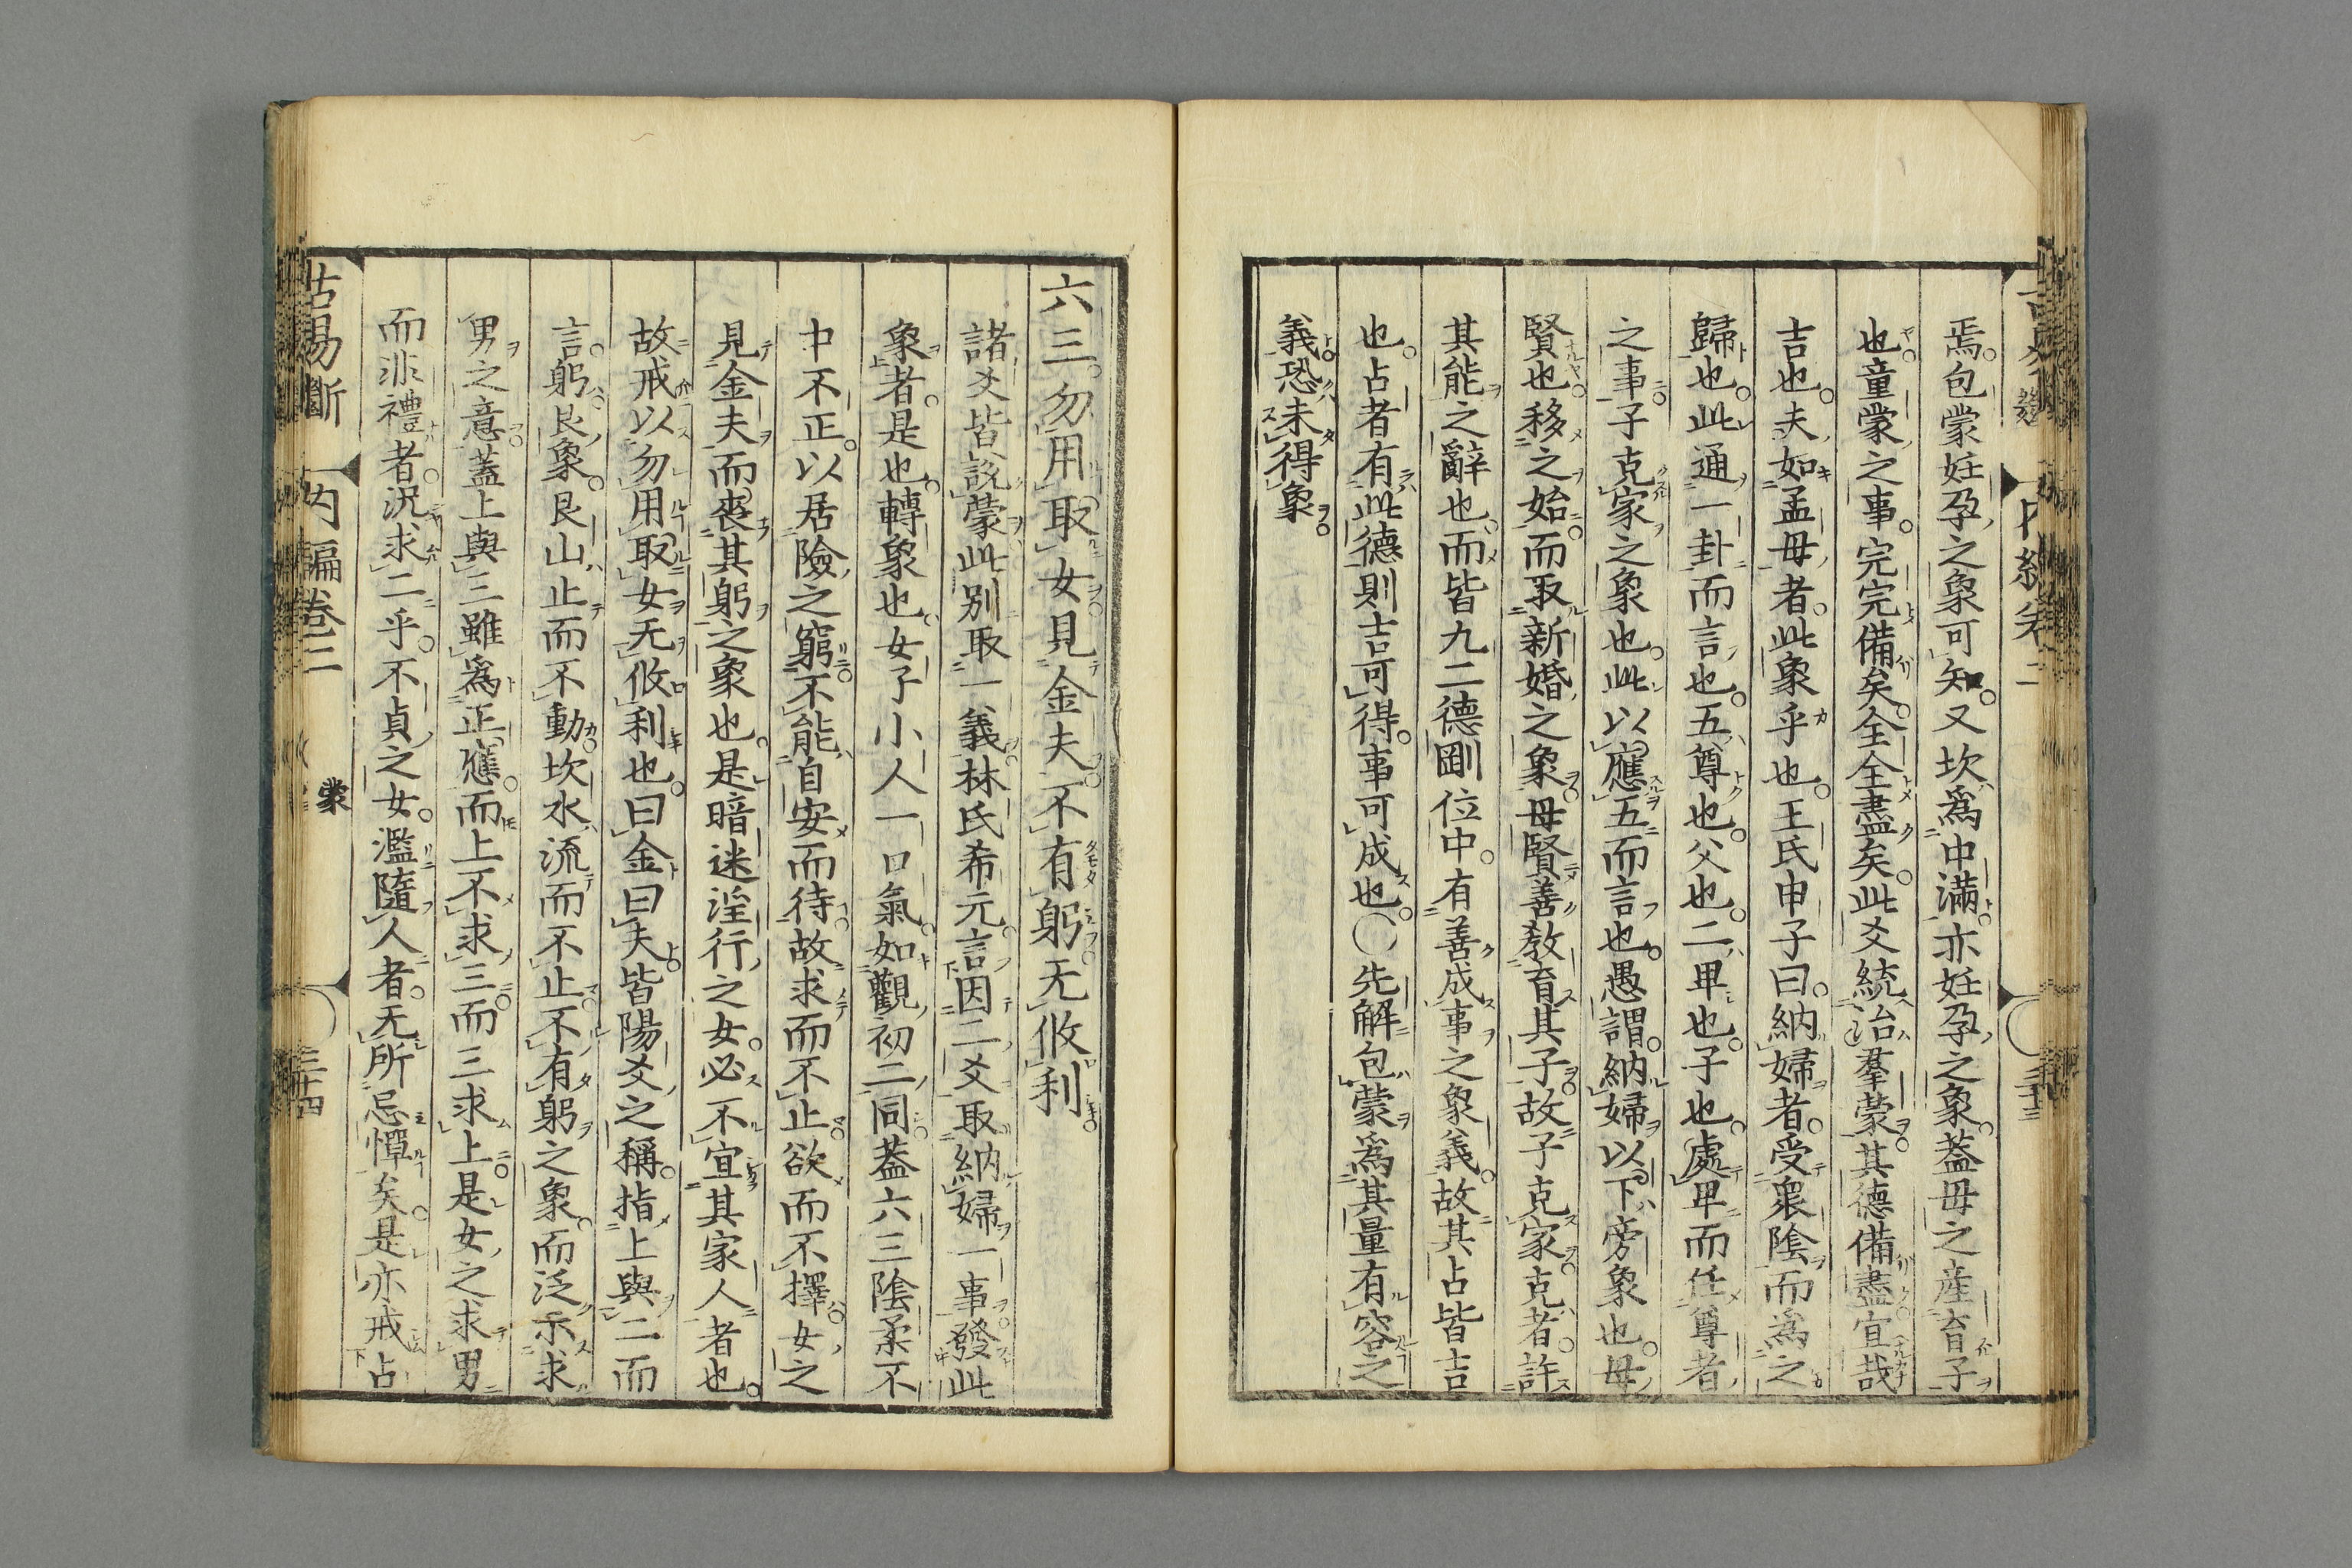 焉包蒙妊孕之象可知又坎為中滿亦妊孕之象蓋母之產育子
也童蒙之事完完備矣全全盡矣此爻統治羣蒙其德備盡宜哉
吉也夫如孟母者此象乎也王氏申子曰納婦者受衆陰而為之
歸也此通一卦而言也五尊也父也二卑也子也處卑而任尊者
之事子克家之象也此以應五而言也愚謂納婦以下旁象也母
賢也移之始而取新婚之象母賢善教育其子故子克家克者許
其能之辭也而皆九二德剛位中有善成事之象義故其占皆吉
也占者有此德則吉可得事可成也〇先解包蒙為其量有容之
義恐未得象
六三勿用取女見金夫不有躬无攸利
諸爻皆說蒙此別取一義林氏希元言因二爻取納婦一事發此
象者是也轉象也女子小人一口氣如觀初二同蓋六三陰柔不
中不正以居險之窮不能自安而待故求而不止欲而不擇女之
見金夫而喪其躬之象也是暗迷淫行之女必不宜其家人者也
故戒以勿用取女无攸利也曰金曰夫皆陽爻之稱指上與二而
言躬艮象艮山止而不動坎水流而不止不有躬之象而泛示求
男之意蓋上與三雖為正應而上不求三而三求上是女之求男
而非禮者況求二乎不貞之女濫隨人者无所忌憚矣是亦戒占
古易斷 內編卷二 蒙 三十四